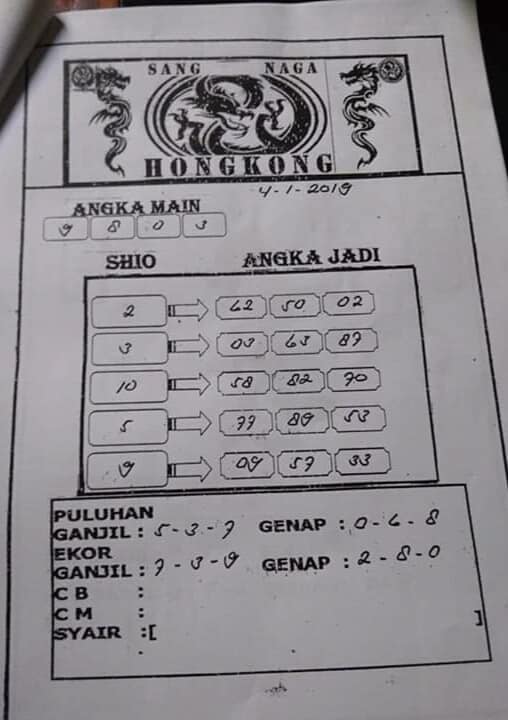 SANG NAGA
HONGKONG
4-1-2019
ANGKA MAIN
9 8 0 3
SHIO ANGKA JADI
2 62 50 02
3 03 63 87
10 58 82 70
5 77 89 53
9 09 57 33
PULUHAN
GANJIL : 5-3-7 GENAP : 0-6-8
EKOR
GANJIL : 7-3-9 GENAP : 2-8-0
C B :
C M :
SYAIR :[ ]